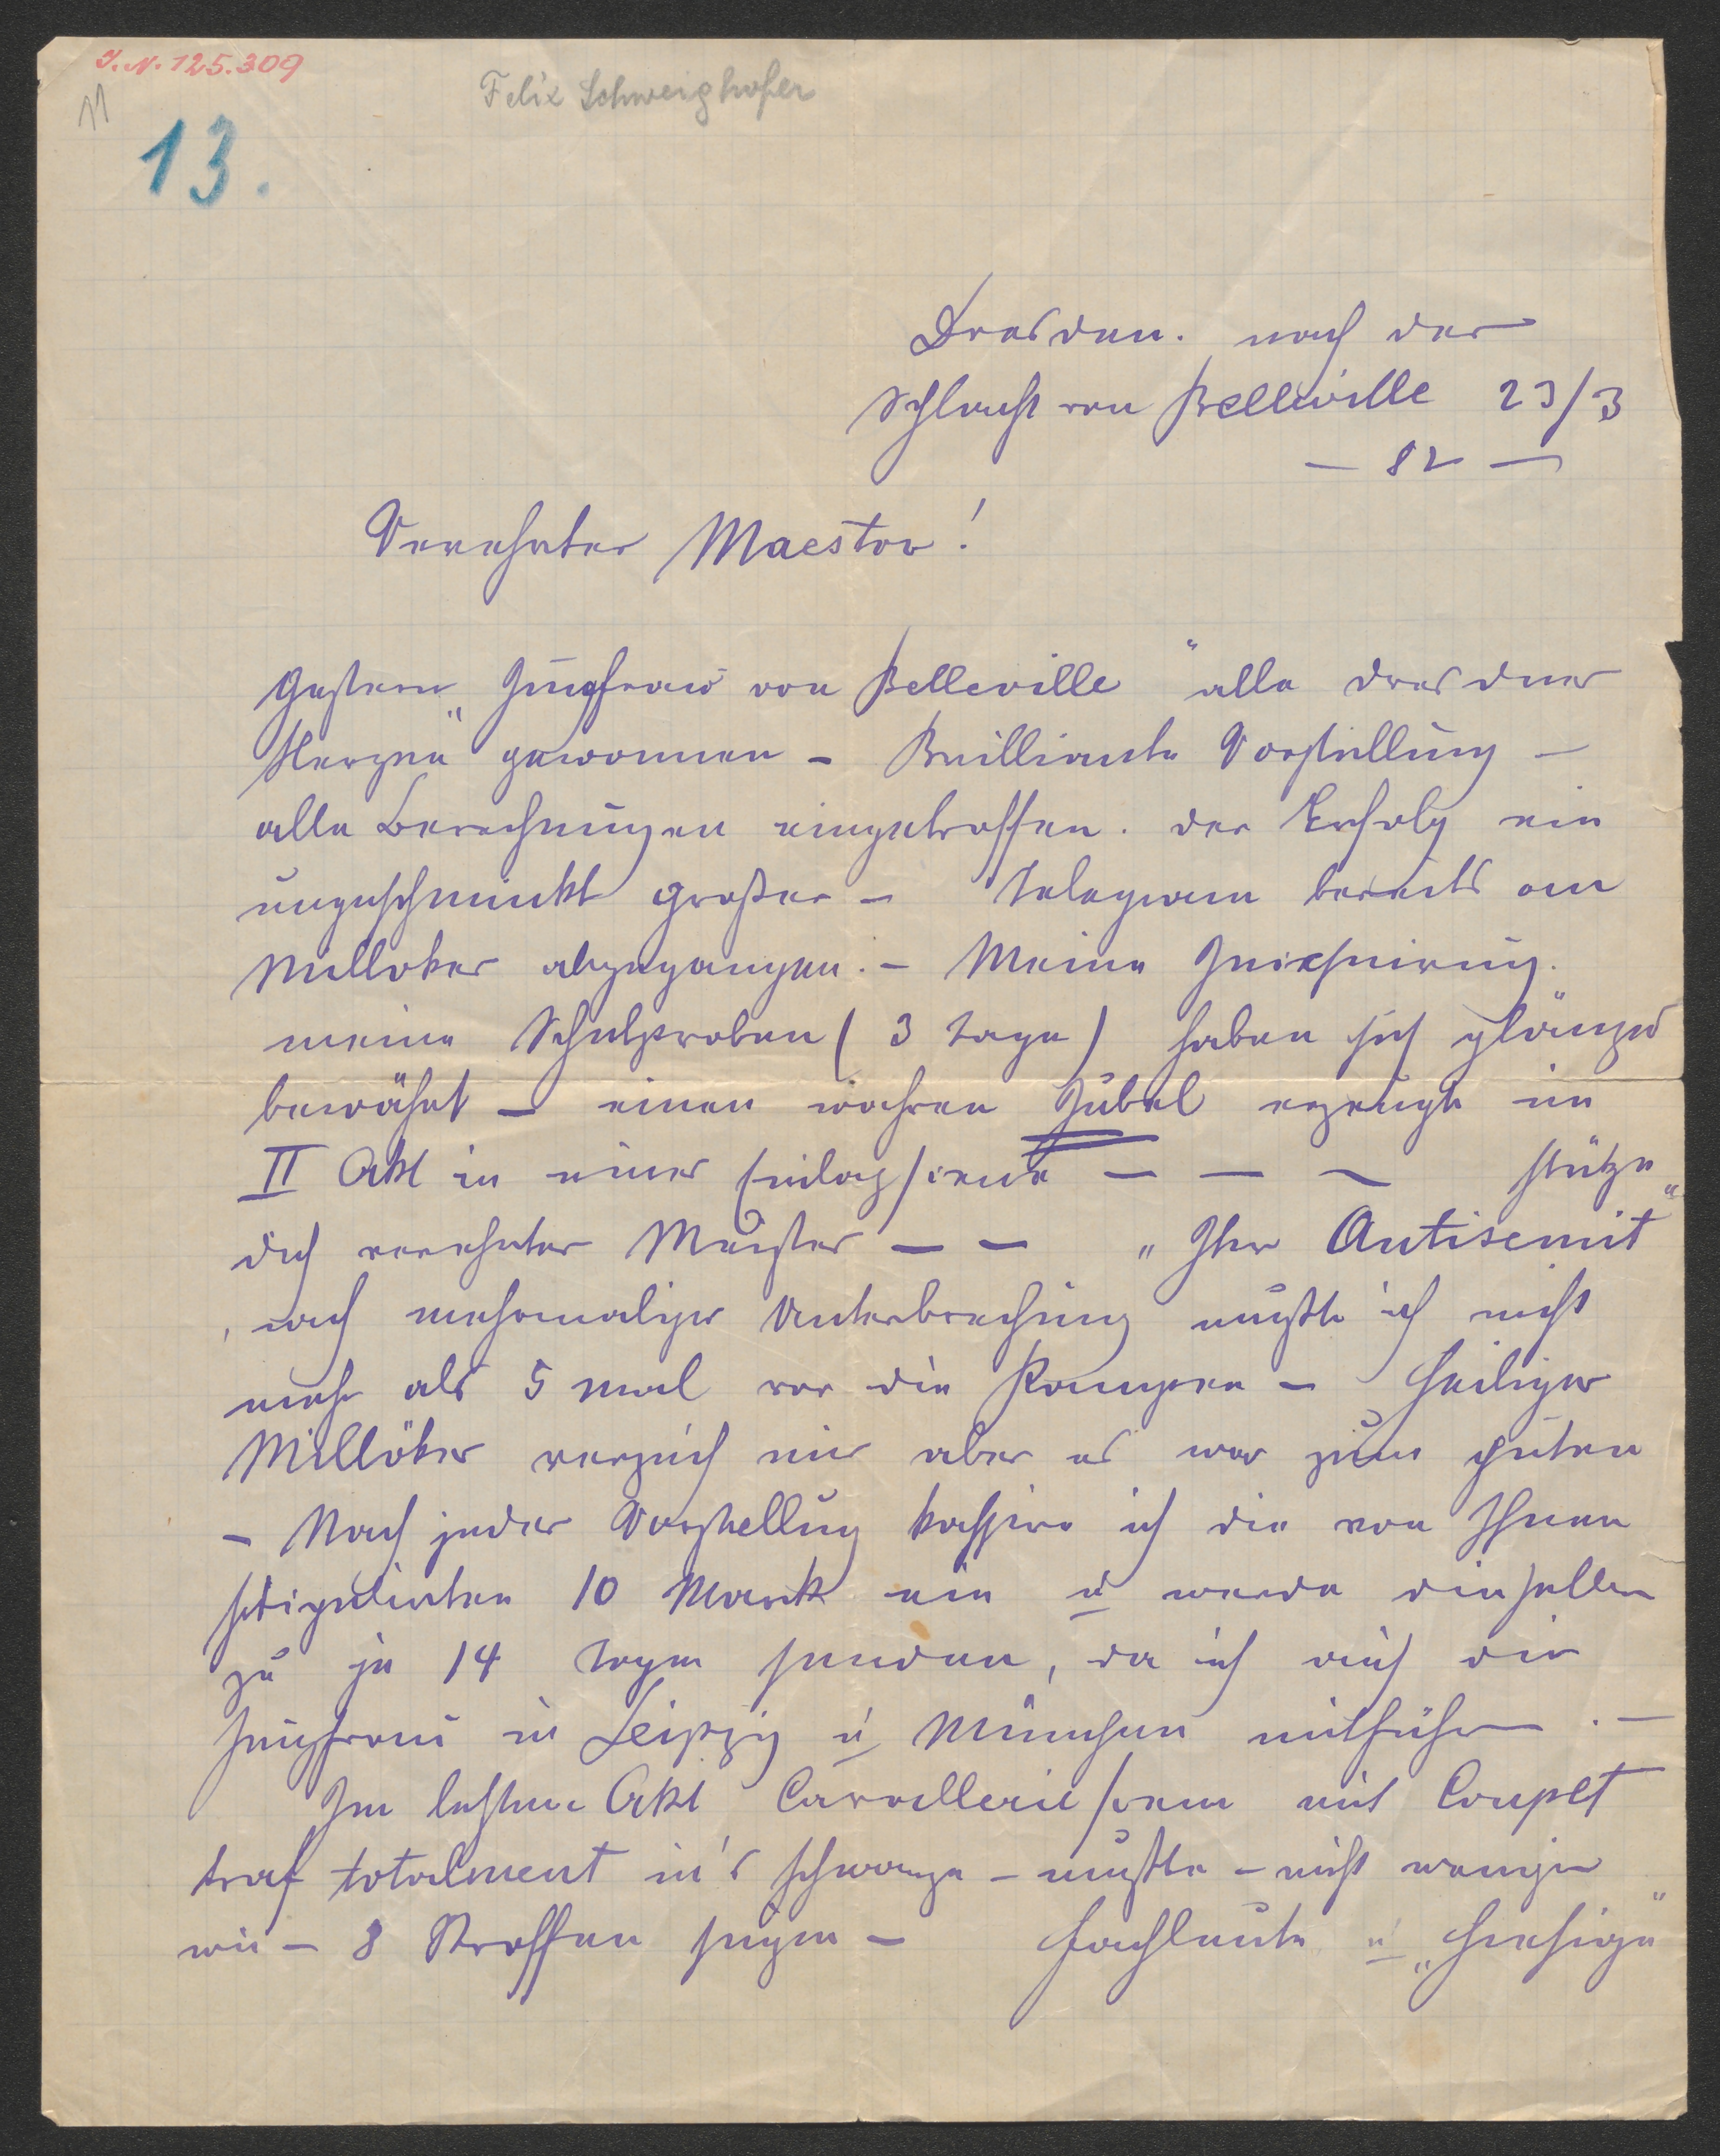 I. N. 125.309
11
Felix Schweighofer
13.
Dresden. nach der
Schlacht von Belleville 23/3
— 82 —
Verehrter Maestro!
Gestern „Jungfrau von Belleville" alle Dresdner
Herzen" gewonnen – Brilliante Vorstellung –
alle Berechnungen eingetroffen. der Erfolg ein
ungeschminkt großer – Telegram bereits an
Millöker abgegangen. – Meine
meine Setzproben (3 Tage) haben sich glänzend
bewährt – einen wahren Jubel erzeugte im
II Akt in einer Einlagscene — — — stütze
dich verehrter Meister — — „Ihr Antisemit"
, nach mehrmaliger Unterbrechung mußte ich nicht
mehr als 5 mal vor die Rampen – Heiliger
Millöker verzeih mir aber es war zum guten
– Nach jeder Vorstellung kassire ich die von Ihnen
stipulirten 10 Mark ein u werde dieselben
zu je 14 Tagen senden, da ich auch die
Jungfrau in Leipzig u München mitführe. –
Im letzten Akt Cavalleriescene mit Couplet
traf totalment in's schwarze – mußte – nicht weniger
wie – 8 Stroffen singen – Fachleute u „hiesige"